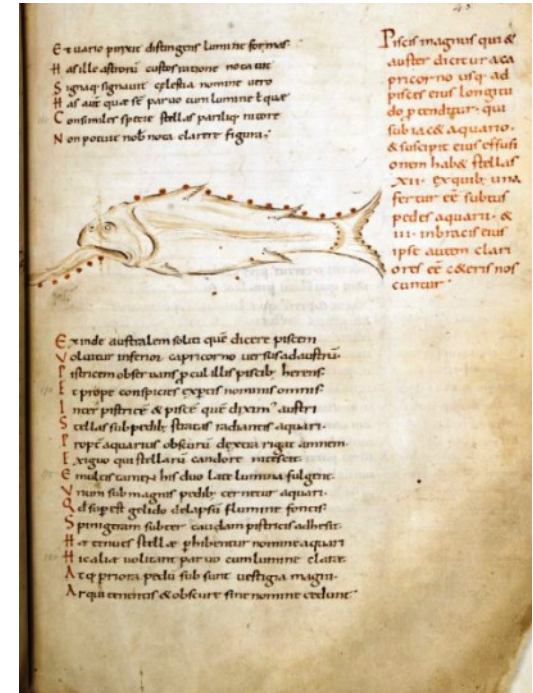 Et uario pinxit distingens lumine formas
Has ille astrorũ custos ratione notauit
Signaq; signauit cęlestia nomine uero
Has aut̃ quae sẽ paruo cum lumine &quae
Consimiles specie stellas pariliq; nitore
Non potuit nob̃ nota clarere figura;
Exinde australem soliti quẽ dicere piscem
Voluitur inferior capricorno uersus ad austrũ
Pistricem obseruans ꝓcul illis piscib; herens
Et prope conspicies expertis nominis omnis
Inter pistricẽ & piscẽ quẽ diximꝰ austri
Stellas sub pedib; stratas radiantis aquari
Propt̃ aquarius obscurũ dextera rigat amnem
Exiguo qui stellarũ candore nitescit
E multis tamen his duo late lumina fulgent
Vnum sub magnis pedib; cernitur aquari
Qd supest gelido delapsũ flumine fontis
Spinigeram subter caudam pistricis adhesit
Hae tenues stellae ꝑhibentur nomine aquari
Hic aliae uolitant paruo cum lumine clarae
Atq; priora pedũ sub sunt uestigia magni
Arqui tenentis & obscure sine nomine cedunt
43
Piscis magnus qui &
auster dicitur a ca
pricorno usq; ad
pisces eius longitu
do ꝓtenditur. qui
sub iac& aquario.
& suscipit eius effusi
onem hab& stellas
.XII. ex quib; una
fertur eẽ subtus
pedes aquarii. &
III. in bracis eius
ipse autem clari
ores eẽ c&eris nos
cuntur.